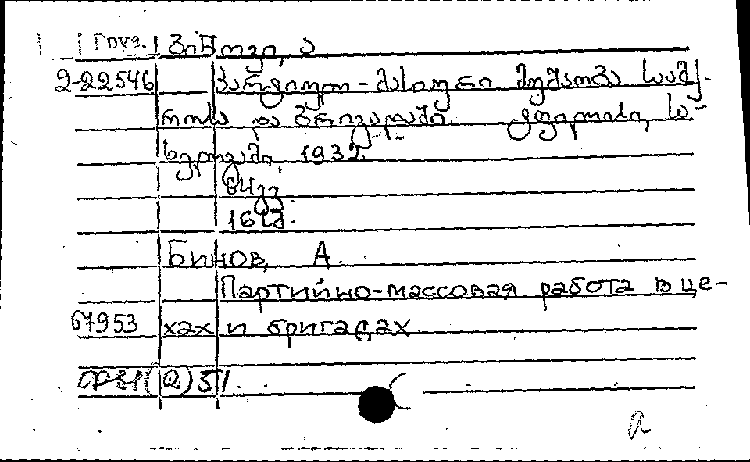 Груз. ბინოვი, ა
2-22546 პარტიულ-მასიური მუშაობა საამქ-
როსა და ბრიგადაში. ტფილისი, სა-
ხელგამი, 1932.
84გვ.
16სმ.
Бинов, А.
Партийно-массовая работа в це-
67953 хах и бригадах